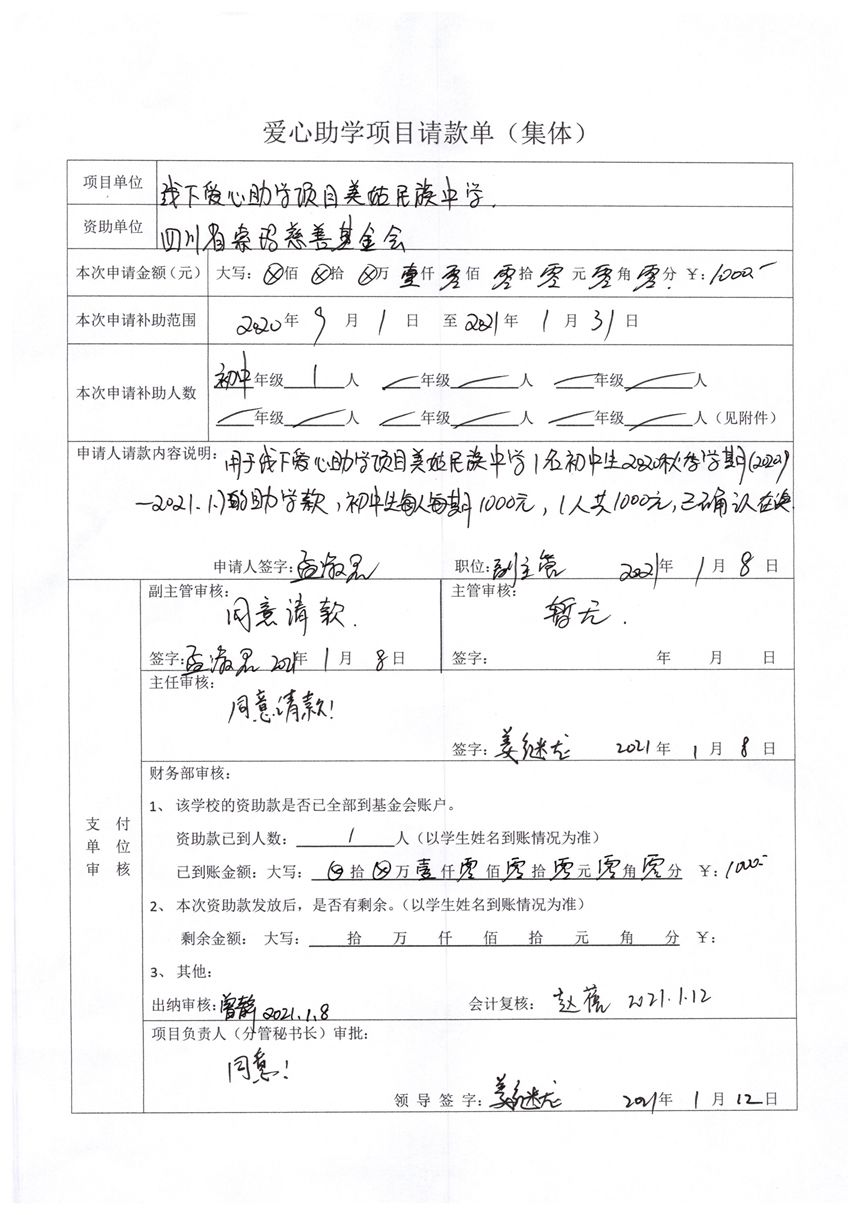 爱心助学项目请款单（集体）
项目单位 线下爱心助学项目美姑民族中学.
资助单位 四川省索玛慈善基金会
本次申请金额（元） 大写：⊗佰 ⊗拾 ⊗万 壹仟 零佰 零拾 零元 零角 零分 ￥：1000.-
本次申请补助范围 2020年 9月 1日 至 2021年 1月 31日
本次申请补助人数 初中年级 1 人 年级 人 年级 人
年级 人 年级 人 年级 人（见附件）
申请人请款内容说明：用于线下爱心助学项目美姑民族中学1名初中生2020秋季学期(2020.9
—2021.1.)的助学款，初中生每人每期1000元，1人共1000元，已确认在读.
申请人签字：孟 职位：副主管 2021年 1月 8日
支付单位审核
副主管审核： 主管审核：
同意请款. 暂无.
签字：孟 2021年 1月 8日 签字： 年 月 日
主任审核：
同意请款！
签字：姜继龙 2021年 1月 8日
财务部审核：
1、 该学校的资助款是否已全部到基金会账户。
资助款已到人数： 1 人（以学生姓名到账情况为准）
已到账金额：大写： ⊗拾 ⊗万 壹仟 零佰 零拾 零元 零角 零分 ￥：1000.-
2、 本次资助款发放后，是否有剩余。（以学生姓名到账情况为准）
剩余金额： 大写： 拾 万 仟 佰 拾 元 角 分 ￥：
3、 其他：
出纳审核：曾静 2021.1.8 会计复核： 赵蓓 2021.1.12
项目负责人（分管秘书长）审批：
同意！
领导签字：姜继龙 2021年 1月 12日